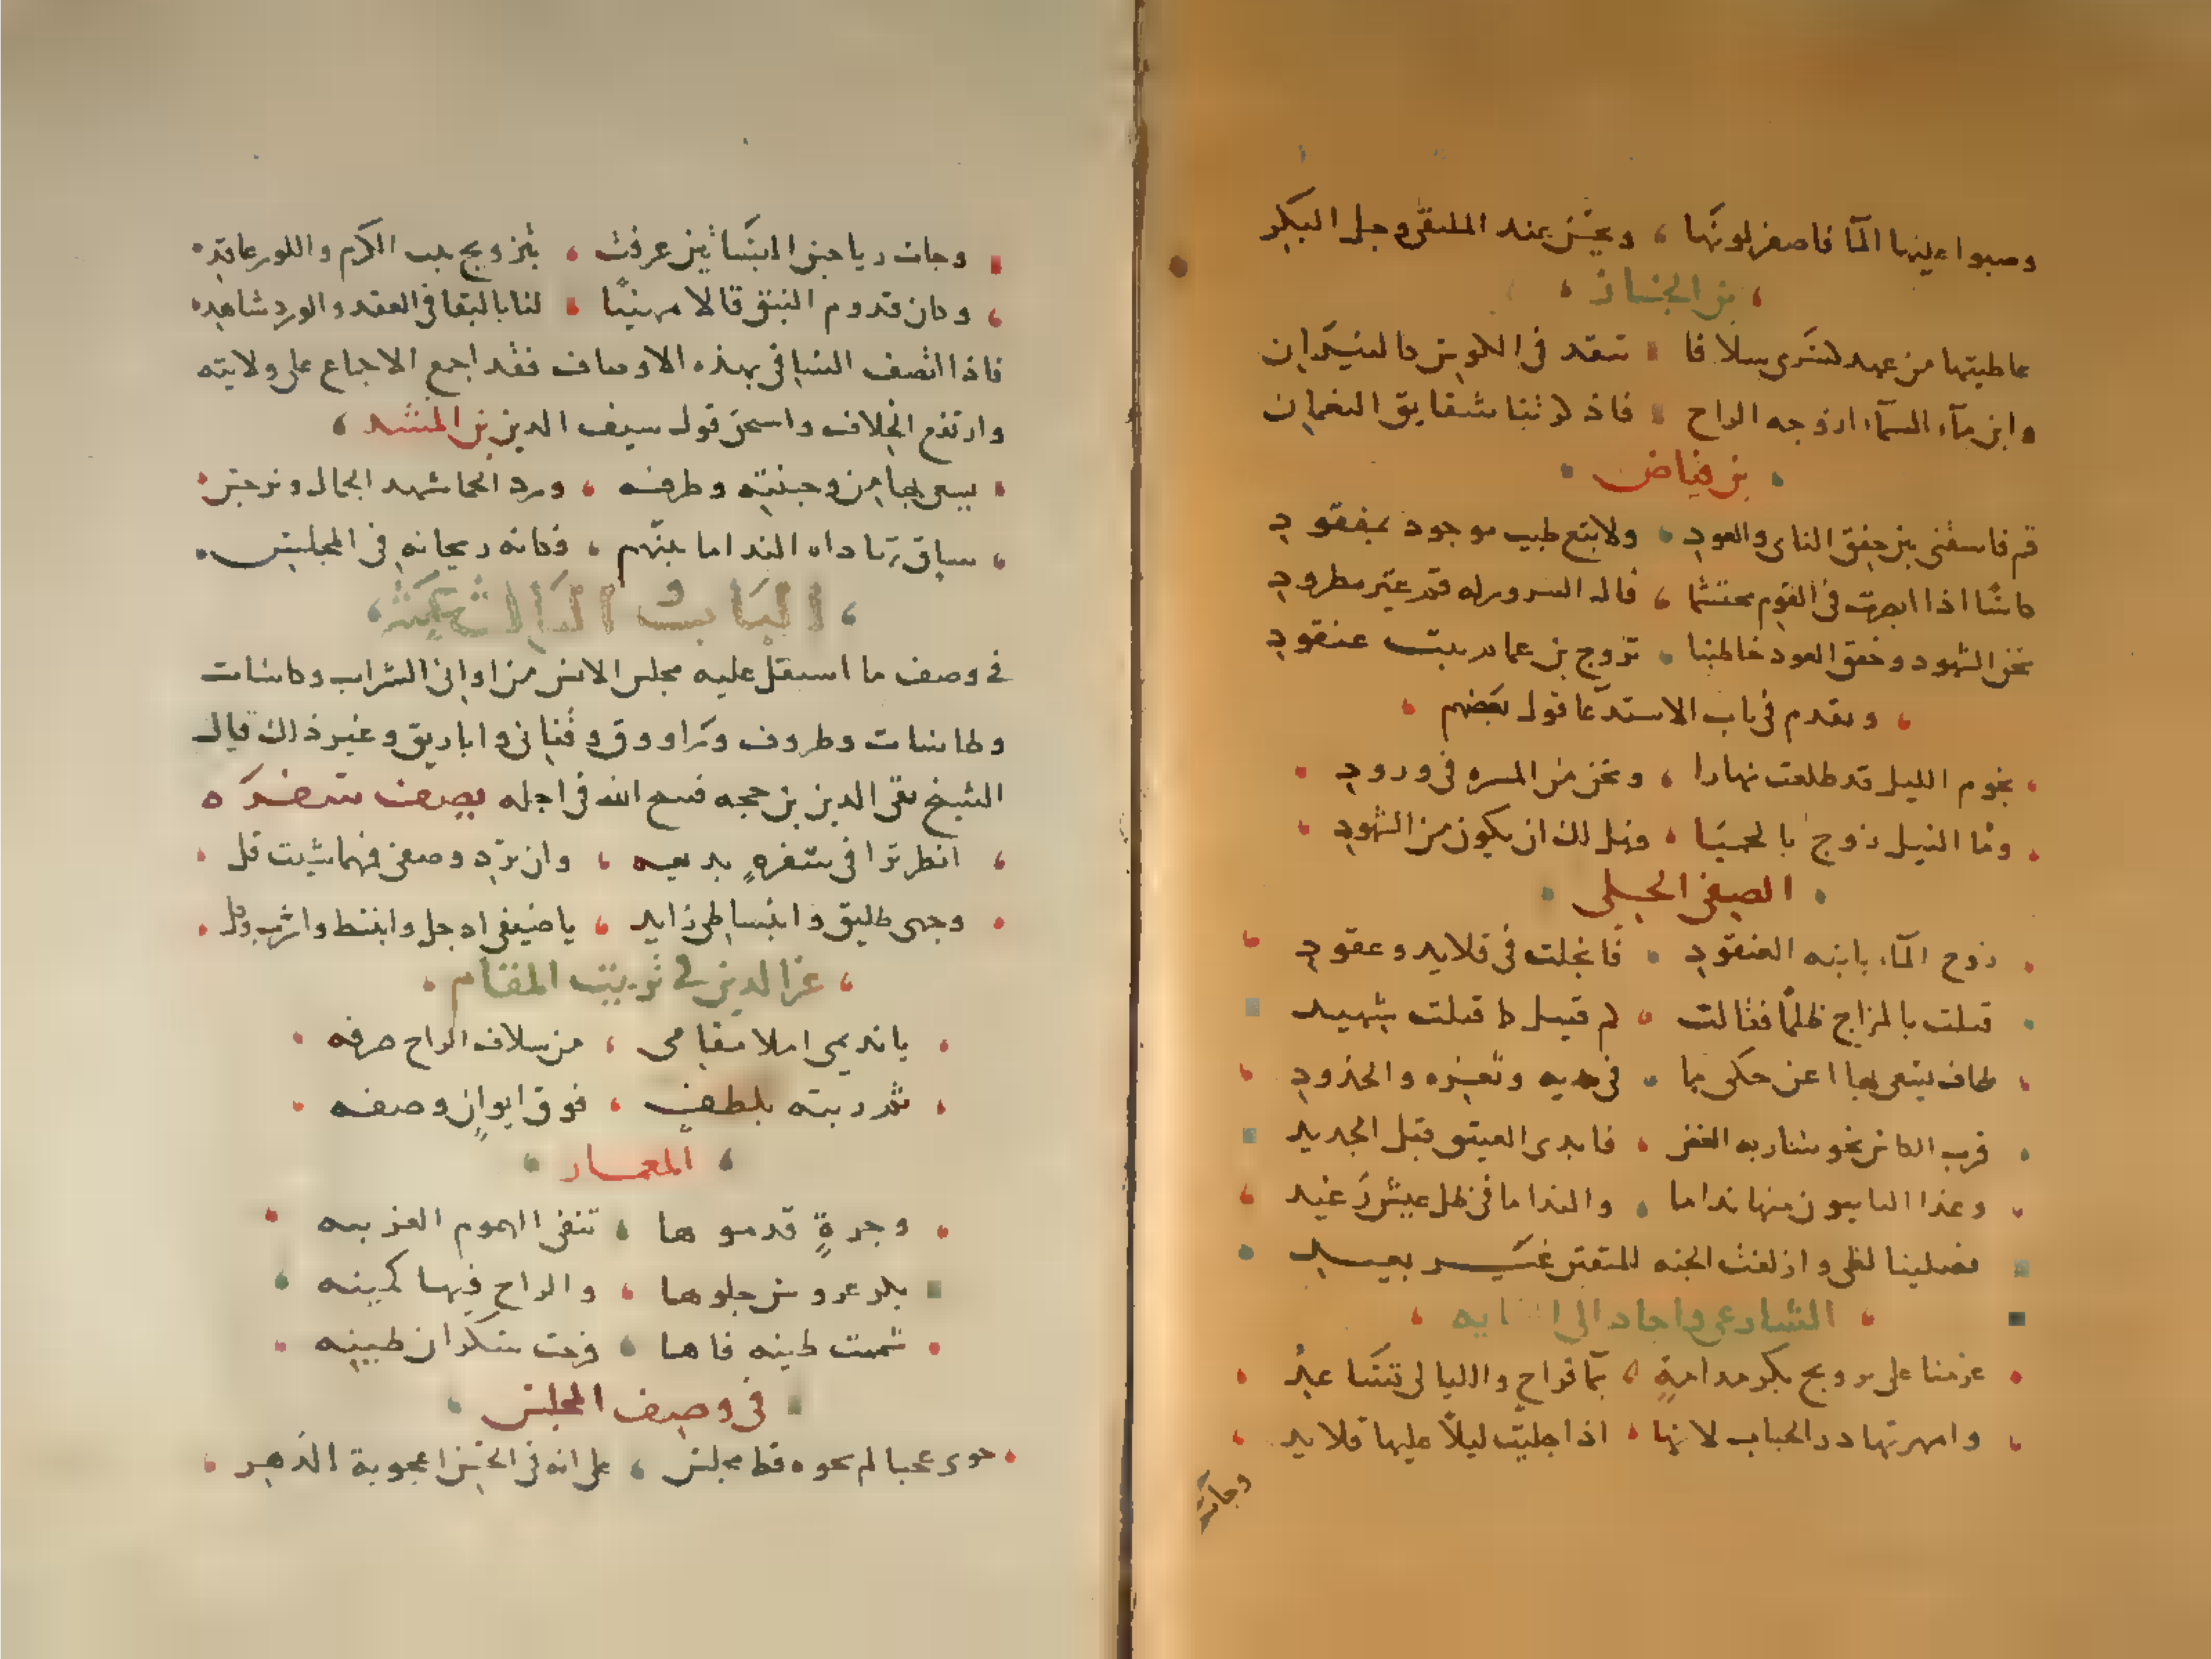 وصبوا عليها المآ فاصفر لونها ، ويحسن عند الملتقى وجل البكر
بن الخباز
عاطيتها من عهد كسرى سلافا تنعقد في الكوبس كالنيران
وابن مآء السمآء ازوجه الراح فاذكرتنا شقايق النعمان
بن فياض
قم فاسقني بين خفق الناى والعود ولا تبع طيب موجود بمفقود
كاسًا اذا ابصرت في القوم محتشما ، قال السرور له قم غير مطرود
نحن الشهود وخفق العود خاطبنا تزوج بن غمام بنت عنقود
وتقدم في باب الاستدعا قول بعضهم
نجوم الليل قد طلعت نهارا ، ونحن من المسره في ورود
ومآ النيل زوج بالحميا ، وهل لك ان يكون من الشهود
الصفي الحلي
زوج المآء بابنه العنقود فانجلت في قلايد وعقود
قبلت بالمزاج ظلمًا فقالت لم قبيل ما قبلت شهيد
طاف يسعى بها اغن حكى ما في يديه وثغره والخدود
قرب الكاس نحو شاربه الغض فابدى العيتق قبل الجديد
وغدا التايبون منها نداما والنداما في ظل عيش رغيد
فصلينا لظى وازلفت الجنه للمتقين غير بعيد
الشارعى واجاد الى
عزمنا على تزويج بكر مدامة بمآ قراح والليالي تساعد
وامهرتها در الحباب لانها اذا جليت ليلاً عليها قلايد
وجات
وجات رياحين البساتين عرفت ، بتزويج بنت الكرم واللوز عاقد
وكان قدوم النبق قالا مهنيًا لنا بالبقا في العقد والورد شاهد
فاذا اتصف الساقي بهذه الاوصاف فقد اجمع الاجماع على ولايته
وارتفع الخلاف واسمع قول سيف الدين بن المشد
يسعى بها من وجنتيه وطرفه ورد الحما شهد الجمال ونرجس
ساق تهاداه النداما بينهم ، وكانه ريحانه في المجلس
الباب الثالث عشر
في وصف ما اشتمل عليه مجلس الانس من اواني الشراب وكاسات
وطاسات وظروف وراووق وقناني واباريق وغير ذلك قال
الشيخ تقي الدين بن حجه فسح الله في اجله يصف سفره
انظر ترا في سفرهٍ بديعه وان ترد وصفي فمهما شيت قل
وجهى طليق وانبساطى زايد يا ضيفي ادخل وانبسط واشرب وكل
عز الدين في شربت المقام
يا نديمي املا مقامى ، من سلاف الراح صرفه
ثم ربته بلطف ، فوق ايوان وصفه
المعمار
وجرةٍ قدموها تنفي الهموم العزيمه
بكر عروس جلوها والراح فيها كمينه
شممت طينه فاها فرحت سكران طينه
في وصف المجلس
حوى عجبا لم يحوه قط مجلس ، على انه في الحسن اعجوبة الدهر